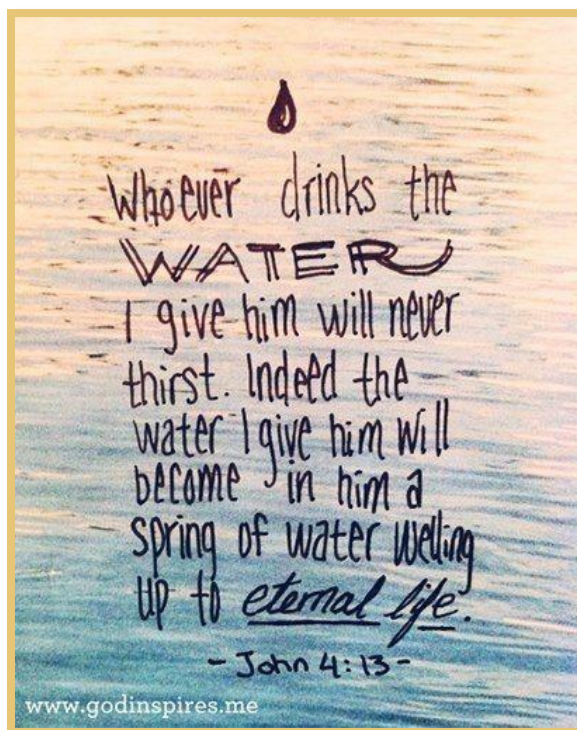 Whoever drinks the
WATER
I give him will never
thirst. Indeed the
water I give him will
become in him a
spring of water welling
up to eternal life.
- John 4:13 -
www.godinspires.me